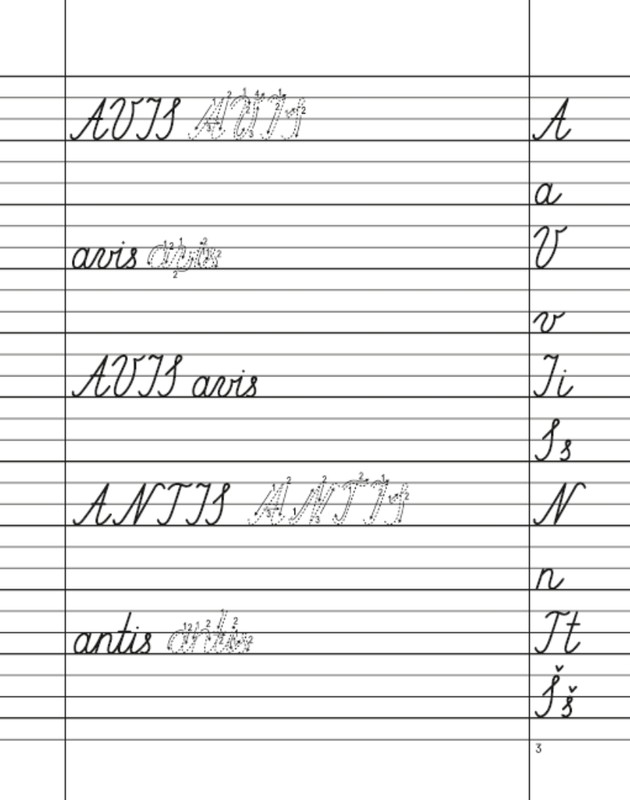 AVIS AVIS A
a
avis avis V
v
AVIS avis Ii
Ss
ANTIS ANTIS N
n
antis antis Tt
Šš
3